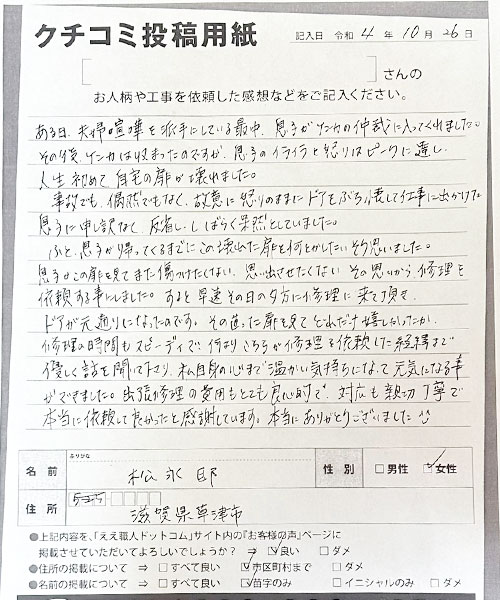 クチコミ投稿用紙
記入日 令和 4 年 10 月 26 日
さんの
お人柄や工事を依頼した感想などをご記入ください。
ある日、夫婦喧嘩を派手にしている最中、息子がケンカの仲裁に入ってくれました。
その後、ケンカは収まったのですが、息子のイライラと怒りはピークに達し、
人生初めて自宅の扉が壊れました。
事故でも、偶然でもなく、故意に怒りのままにドアをぶち壊して仕事に出かけた
息子に申し訳なく、反省し、しばらく呆然としていました。
ふと、息子が帰ってくるまでにこの壊れた扉を何とかしたいそう思いました。
息子がこの扉を見てまた傷つけたくない、思い出させたくない その思いから修理を
依頼する事にしました。すると早速その日の夕方に修理に来て頂き、
ドアが元通りになったのです。その直った扉を見てどれだけ嬉しかったか、
修理の時間もスピーディで、何よりこちらが修理を依頼した経緯まで
優しく話を聞いて下さり、私自身の心まで温かい気持ちになって元気になる事
ができました。出張修理の費用もとても良心的で、対応も親切丁寧で
本当に依頼して良かったと感謝しています。本当にありがとうございました
ふりがな
名前 松永 性別 □男性 □女性
住所 525
滋賀県草津市
●上記内容を、「ええ職人ドットコム」サイト内の『お客様の声』ページに
掲載させていただいてよろしいでしょうか？ ⇒ □良い □ダメ
●住所の掲載について ⇒ □すべて良い □市区町村まで □ダメ
●名前の掲載について ⇒ □すべて良い □苗字のみ □イニシャルのみ □ダメ